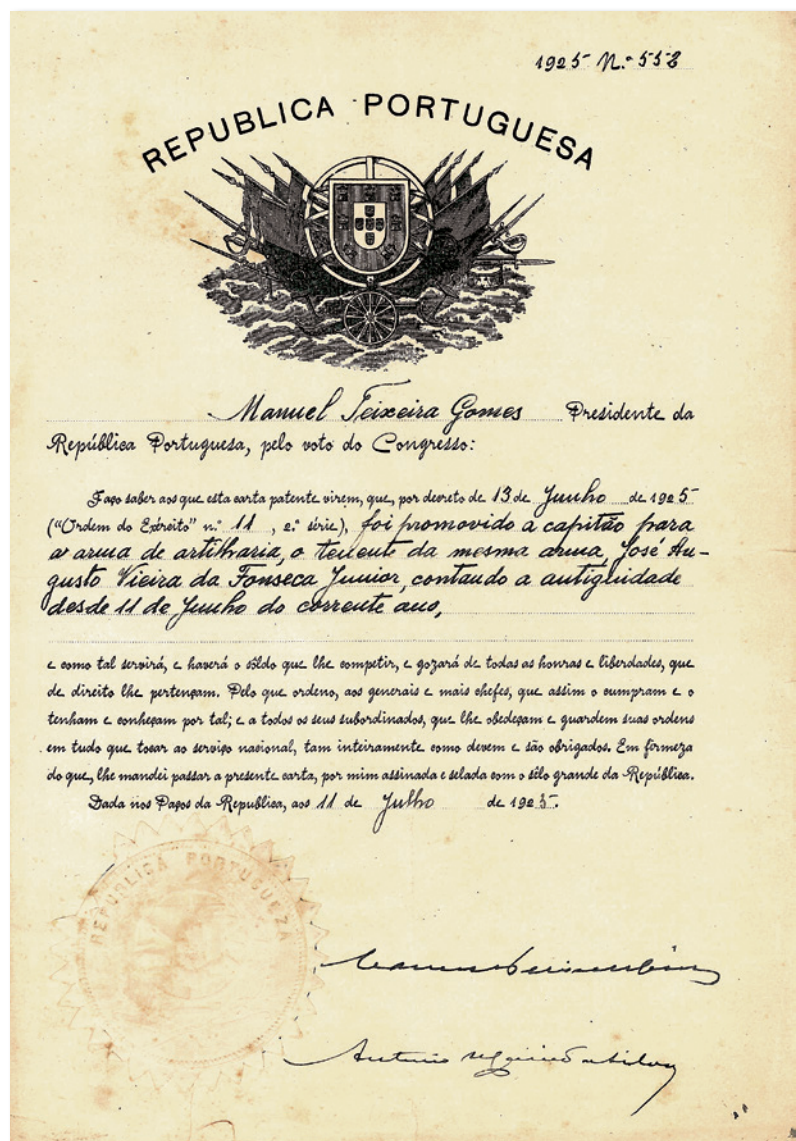 1925 N.º 558
REPUBLICA PORTUGUESA
Manuel Teixeira Gomes Presidente da
República Portuguesa, pelo voto do Congresso:
Faço saber aos que esta carta patente virem, que, por decreto de 13 de Junho de 1925
("Ordem do Exército" n.º 11, 2.ª série), foi promovido a capitão para
a arma de artilharia, o tenente da mesma arma, José Au-
gusto Vieira da Fonseca Junior, contando a antiguidade
desde 11 de Junho do corrente ano,
e como tal servirá, e haverá o sôldo que lhe competir, e gozará de todas as honras e liberdades, que
de direito lhe pertençam. Pelo que ordeno, aos generais e mais chefes, que assim o cumpram e o
tenham e conheçam por tal; e a todos os seus subordinados, que lhe obedeçam e guardem suas ordens
em tudo que tocar ao serviço nacional, tam inteiramente como devem e são obrigados. Em firmeza
do que, lhe mandei passar a presente carta, por mim assinada e selada com o sêlo grande da República.
Dada nos Paços da Republica, aos 11 de Julho de 1925.
REPUBLICA PORTUGUEZA